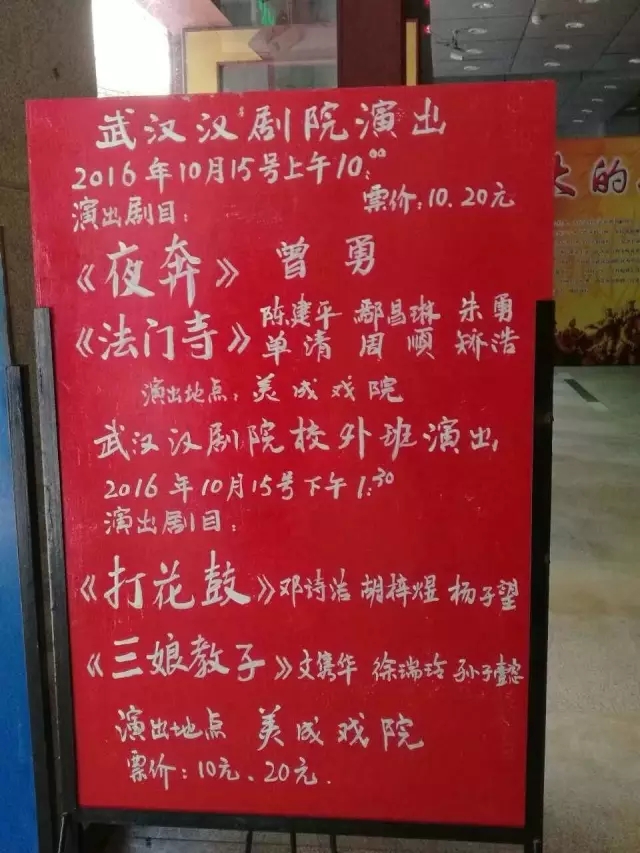 武汉汉剧院演出
2016年10月15号上午10:00
演出剧目: 票价:10.20元
《夜奔》 曾勇
《法门寺》 陈建平 鄢昌琳 朱勇
单清 周顺 矫浩
演出地点: 美成戏院
武汉汉剧院校外班演出
2016年10月15号下午1:30
演出剧目:
《打花鼓》邓诗浩 胡梓煜 杨子望
《三娘教子》文隽华 徐瑞玲 孙子懿
演出地点 美成戏院
票价:10元、20元.
大的